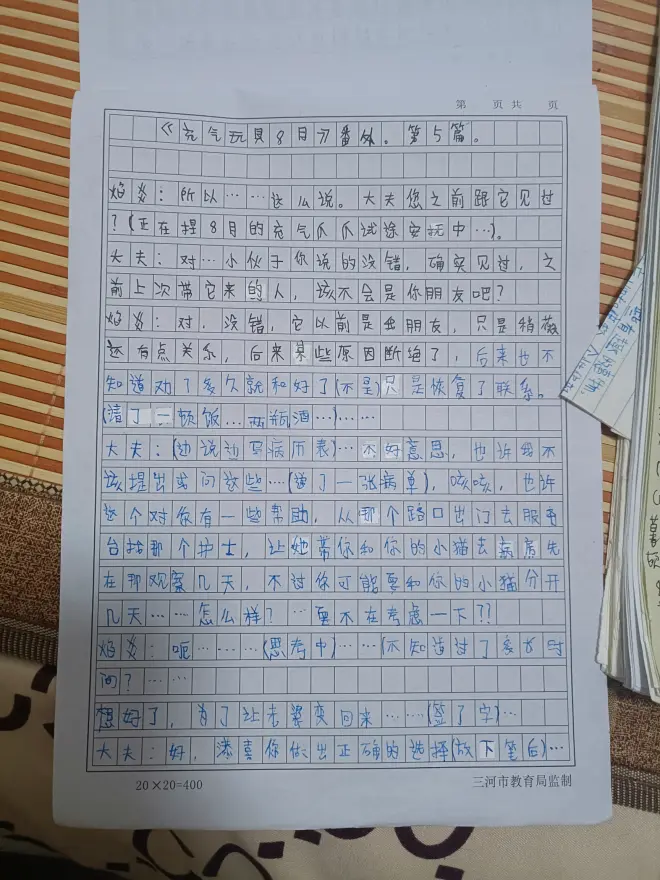 第 页 共 页
《充气玩具8月》番外。第5篇。
焰炎：所以……这么说。大夫您之前跟它见过
？(正在捏8月的充气爪爪试途安抚中…)。
大夫：对…小伙子你说的没错，确实见过，之
前上次带它来的人，该不会是你朋友吧？
焰炎：对，没错，它以前是朋友，只是稍微
还有点关系，后来某些原因断绝了，后来也不
知道劝了多久就和好了(不是)只是恢复了联系。
(请了一顿饭…两瓶酒…)……
大夫：(边说边写病历表)…不好意思，也许我不
该提出去问这些…(递了一张病单)，咳咳，也许
这个对你有一些帮助，从那个路口出门去服务
台找那个护士，让她带你和你的小猫去病房先
在那观察几天，不过你可能要和你的小猫分开
几天……怎么样？…要不在考虑一下??
焰炎：呃………(思考中)……(不知道过了多少时
间？……
想好了，为了让老婆变回来……(签了字)…
大夫：好，恭喜你做出正确的选择(放下笔后)…
20×20=400
三河市教育局监制